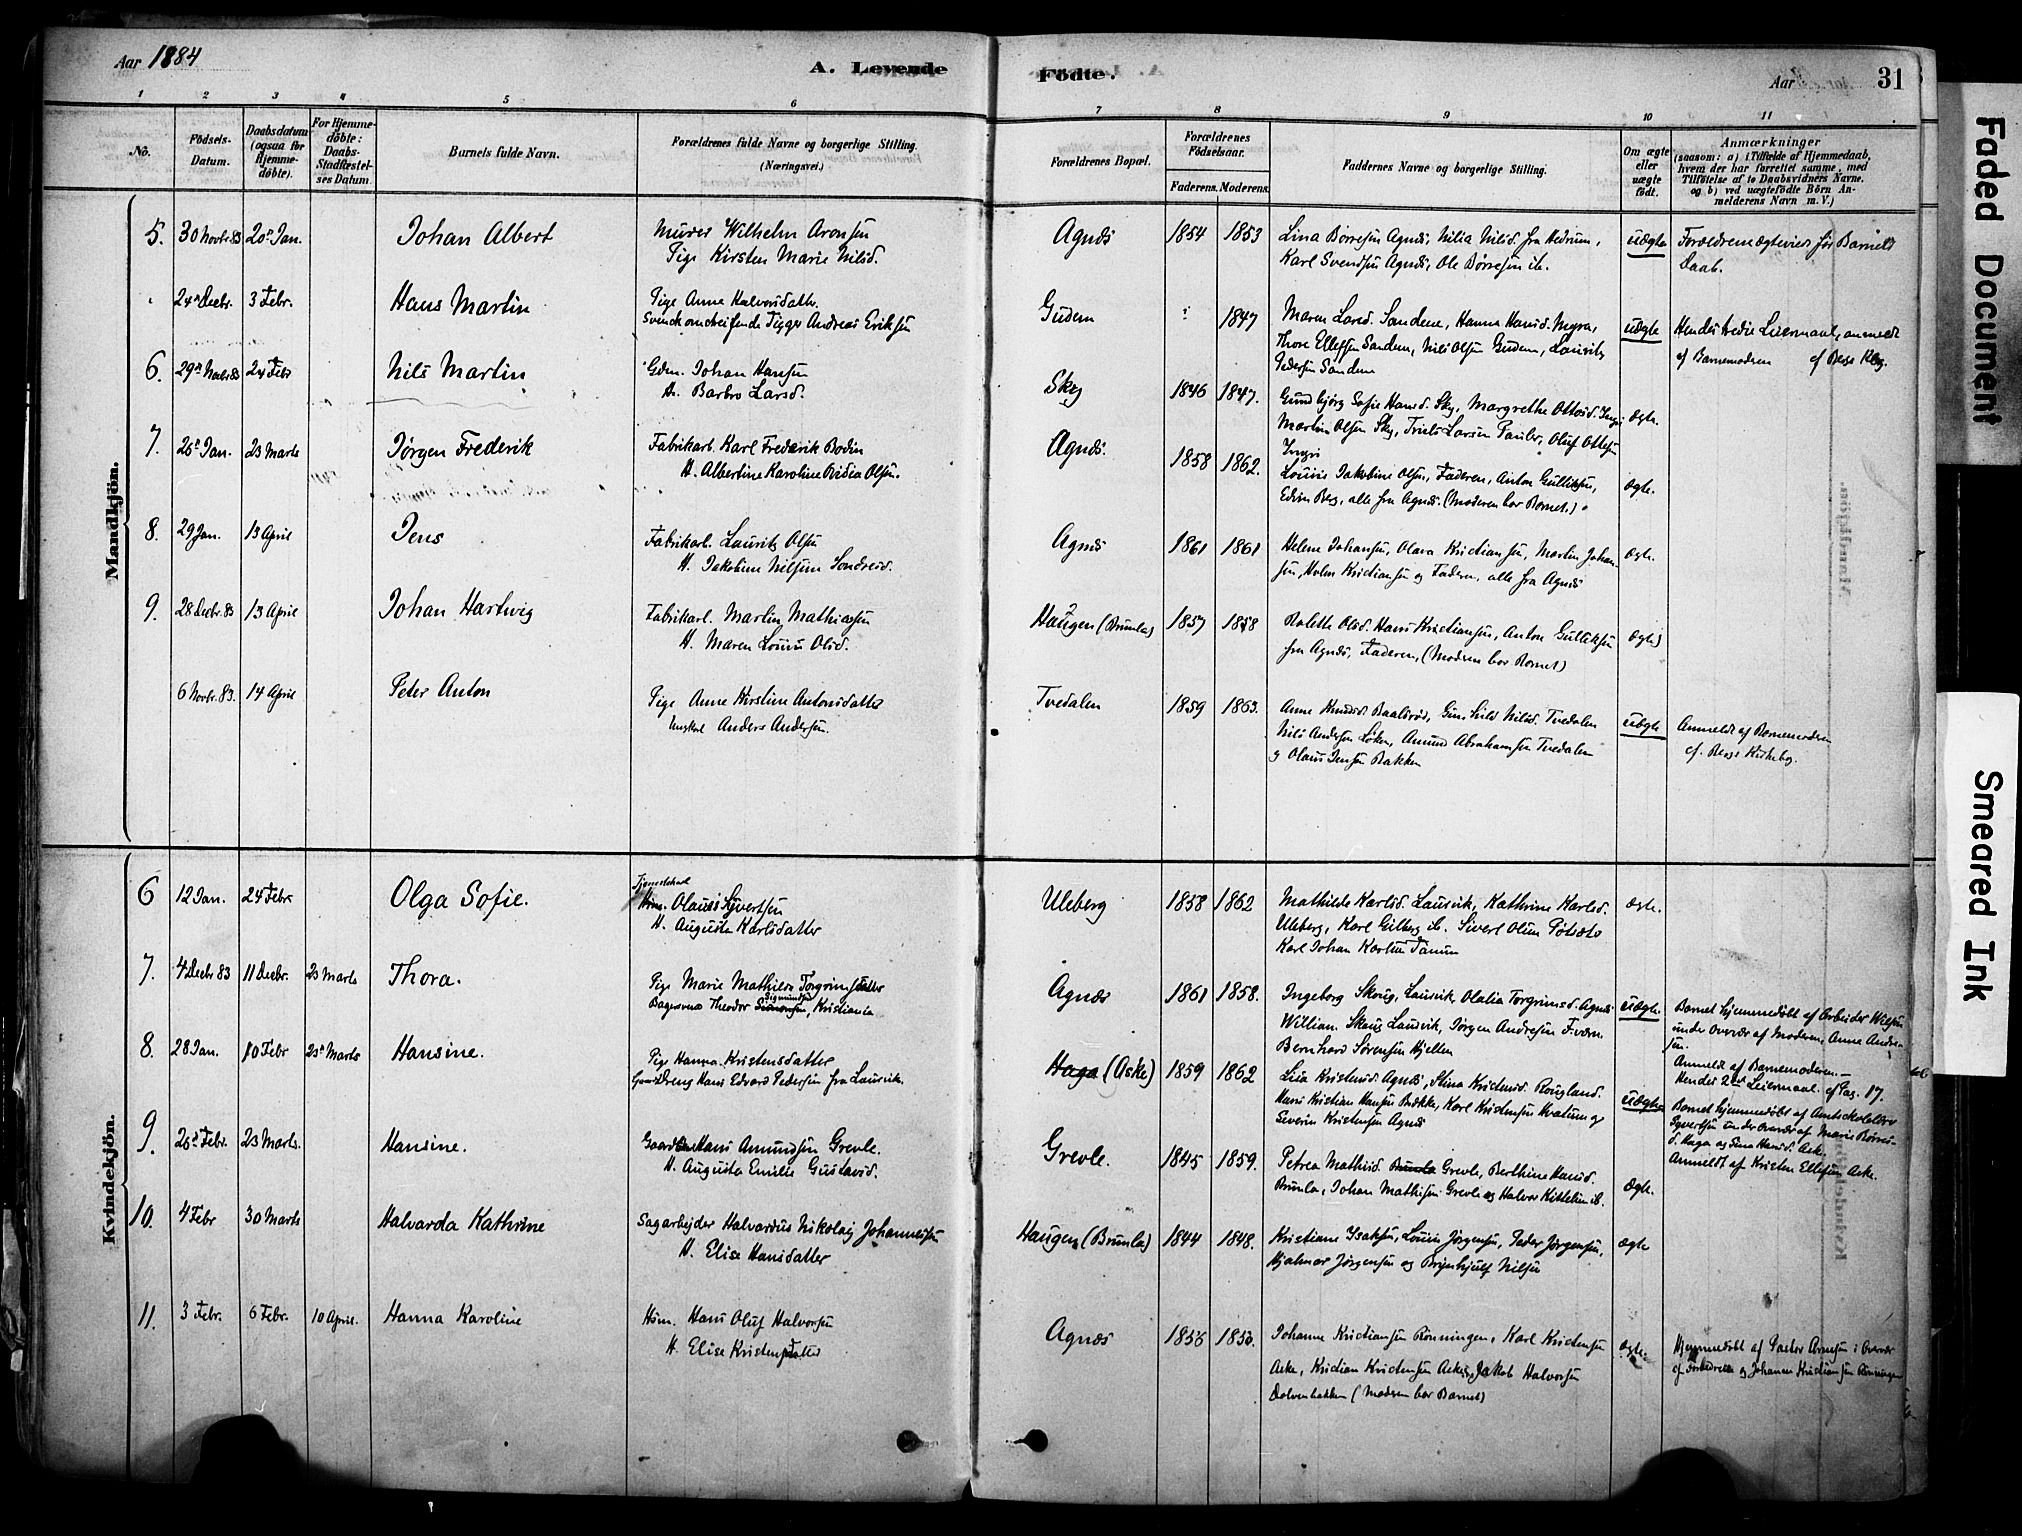 Aar 1884
A. Levende
Födte.
Aar
31
1 2 3 4 5 6 7 8 9 10 11
No.
Födsels-Datum.
Daabsdatum (ogsaa for Hjemmedöbte).
For Hjemmedöbte: Daabs-Stadfæstelses Datum.
Barnets fulde Navn.
Forældrenes fulde Navne og borgerlige Stilling. (Næringsvei.)
Forældrenes Bopæl.
Forældrenes Födselsaar.
Faderens. Moderens.
Faddernes Navne og borgerlige Stilling.
Om ægte eller uægte födt.
Anmærkninger
(saasom: a) i Tilfælde af Hjemmedaab, hvem der har forrettet samme, med Tilföielse af to Daabsvidners Navne. og b) ved uægtefödte Börn Anmelderens Navn m. V.)
Mandkjön.
5. 30 Novbr. 83 20de Jan. Johan Albert
Murer Wilhelm Aronsen
Pige Kirsten Marie Nilsd.
Agnæs 1854 1853
Lina Børresen Agnæs, Nilia Nilsd. fra Hedrum,
Karl Svendsen Agnæs, Ole Børresen ib.
uægte
Forældrene ægteviede før Barnets
Daab.
24de Decbr. 3 Febr. Hans Martin
Pige Anne Halvorsdatter
Svensk omstreifende Tigger Andreas Eriksen
Gudem 1847
Maren Larsd. Sandene, Hanna Hansd. Myra,
Thore Ellefsen Sanden, Nils Olsen Gudem, Lauritz
Pedersen Sanden
uægte
Hendes tredie Leiermaal, anmeldt
af Barnemoderen
6. 29de Novbr 83 24 Febr Nils Martin
Gdm. Johan Hansen
H. Barbro Larsd.
Sky 1846 1847.
Gunbjørg Sofie Hansd. Sky, Margrethe Ottosd.
Martin Olsen Sky, Truls Larsen Pauler, Oluf Ottesen
ægte.
7. 26de Jan. 23 Marts Jørgen Frederik
Fabrikarb. Karl Frederik Bodin
H. Albertine Karoline Olsen.
Agnæs. 1858 1862.
Louise Jakobine Olsen, Faderen, Anton Gulliksen,
Edvin Berg, alle fra Agnæs. (Moderen bar Barnet.)
ægte.
8. 29 Jan. 13 April Jens
Fabrikarb. Lauritz Olsen
H. Jakobine Nilsine
Agnæs 1861 1861
Helene Johansen, Olava Kristiansen, Martin Johansen,
Holm Kristiansen og Faderen, alle fra Agnæs
ægte.
9. 28 Decbr. 83 13 April Johan Hartvig
Fabrikarb. Martin Mathiasen
H. Maren Louise Olsd.
Haugen (Brunla) 1857 1858
Rolette Olsd. Hans Kristiansen, Anton Gulliksen
fra Agnæs, Faderen, (Moderen bar Barnet)
ægte
6 Novbr. 83. 14 April Peter Anton
Pige Anne Kirstine Antonsdatter
Ungkarl Anders Andersen.
Tvedalen 1859 1863.
Anne Knudsd. Baalsrød, Gunhild Nilsd. Tvedalen
Nils Andersen Løken, Amund Abrahamsen Tvedalen
og Olaus Jensen Bakken
uægte
Anmeldt af Barnemoderen
Kvindekjön.
6 12 Jan. 24 Febr. Olga Sofie.
Tjenestekarl
Olaus Syvertsen
H. Augusta Karlsdatter
Uleberg 1858 1862
Mathilde Karlsd. Laurvik, Kathrine Karlsd.
Uleberg, Karl Gilberg ib. Sivert Olsen
Karl Johan Karlsen Tanum
ægte.
7. 4 Decbr 83 11 Decbr. 23 Marts Thora.
Pige Marie Mathilde Torgrimsdatter
Bagersvend Theodor Sigmundsen, Kristiania
Agnæs 1861 1858.
Ingeborg Skoug, Laurvik, Olalia Torgrimsd. Agnæs
William Skoug Laurvik, Jørgen Andresen
Bernhard Sørensen Kjellen
uægte.
Barnet hjemmedøbt af Arbeider Nilsen
under Overvær af Moderen, Anne Andresen.
Anmeldt af Barnemoderen.
8. 28 Jan. 10 Febr 23de Marts Hansine.
Pige Hanna Kristensdatter
Hans Edvard Pedersen fra Laurvik.
Haga (Aske) 1859 1862
Lisa Kristensd. Agnæs, Stina Kristensd. Rougland.
Hans Kristian Hansen Brekke, Karl Kristensen Kvatum og
Severin Kristensen Agnæs
uægte
Hendes 2det Leiermaal. cf Pag. 17.
Barnet hjemmedøbt af Amtsskolelærer
Syvertsen under Overvær af Marie
Haga og Hansd. Aske.
Anmeldt af Kristen Ellefsen Aske.
9. 26de Febr. 23 Marts. Hansine.
Hans Amundsen Grevle.
H. Augusta Emilie Gustavsd.
Grevle. 1845 1859.
Petrea Mathisd. Brunla Grevle, Berthine Hansd.
Brunla, Johan Mathisen Grevle og Halvor Kittelsen ib.
ægte.
10. 4 Febr 30 Marts Halvarda Kathrine
Sagarbejder Halvardus Nikolaij Johannesen
H. Elise Hansdatter
Haugen (Brunla) 1844 1848.
Kristiane Isaksen, Louise Jørgensen, Peder Jørgensen,
Hjalmar Jørgensen og Brynhjulf Nilsen
ægte
11. 3 Febr. 6 Febr. 10 April. Hanna Karoline
Hsm. Hans Oluf Halvorsen
H. Elise Kristensdatter
Agnæs 1856 1850.
Johanne Kristiansen Rønningen, Karl Kristensen
Aske, Kristian Kristensen Aske, Jakob Halvorsen
Dolvenbakken (Moderen bar Barnet)
ægte.
Hjemmedøbt af Pastor Arnesen i Overvær
af Forældrene og Johanne Kristiansen Rønningen
Faded Document
Smeared Ink